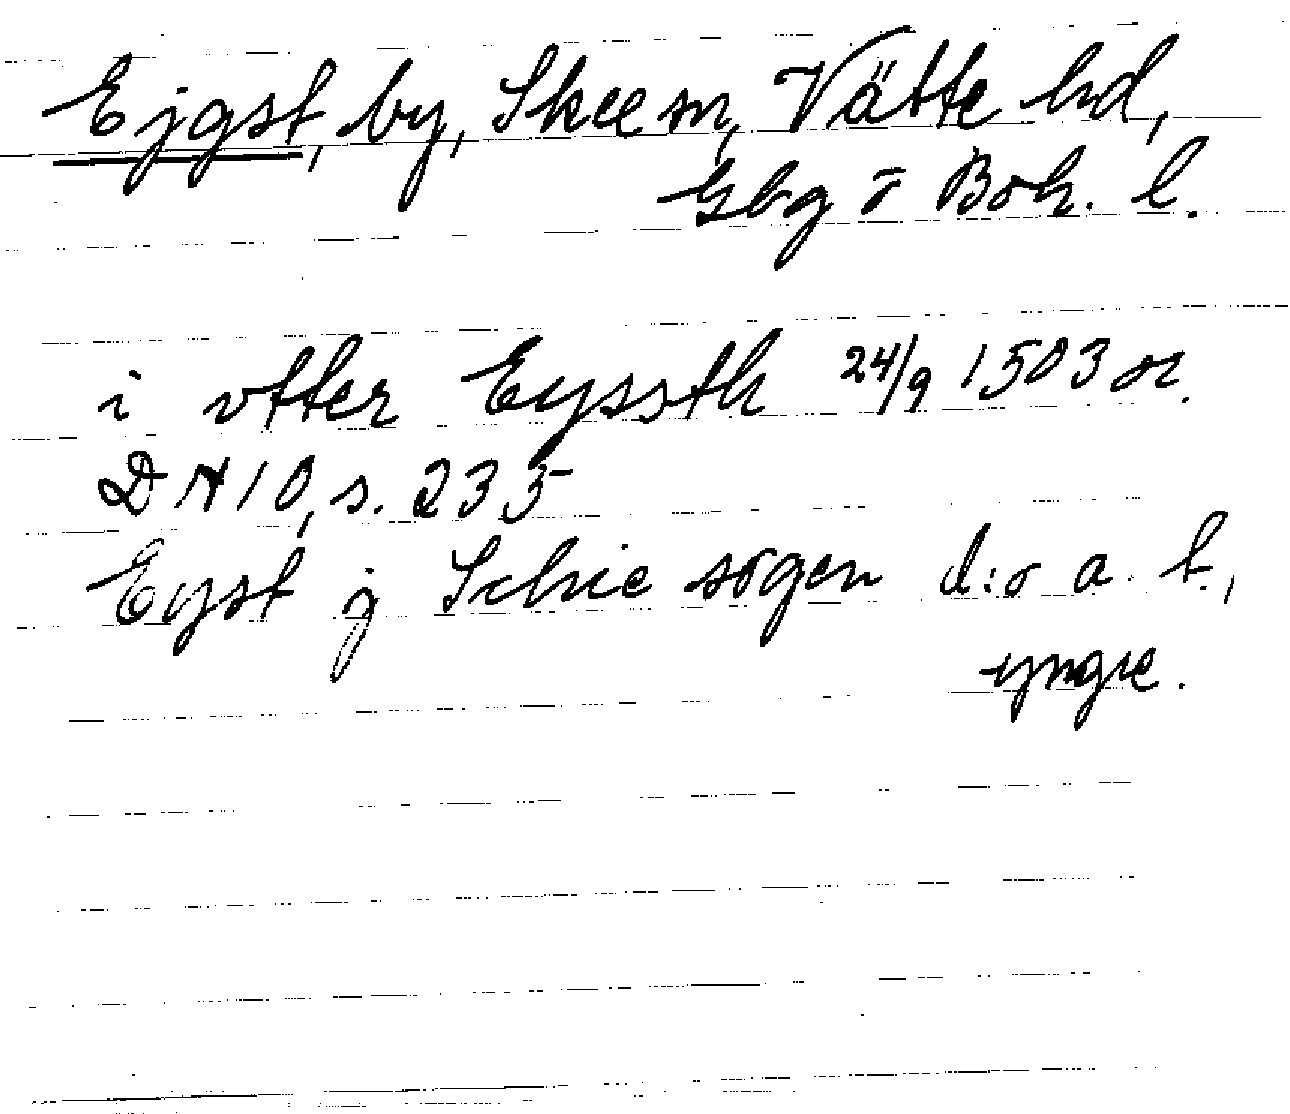 Ejgst, by, Skee sn, Vätte hd,
Gbg o Boh. l.
i vtter Eyssth 24/9 1503 or.
DN 10, s. 235
Eyst j Schie sogen d:o a. t.,
yngre.